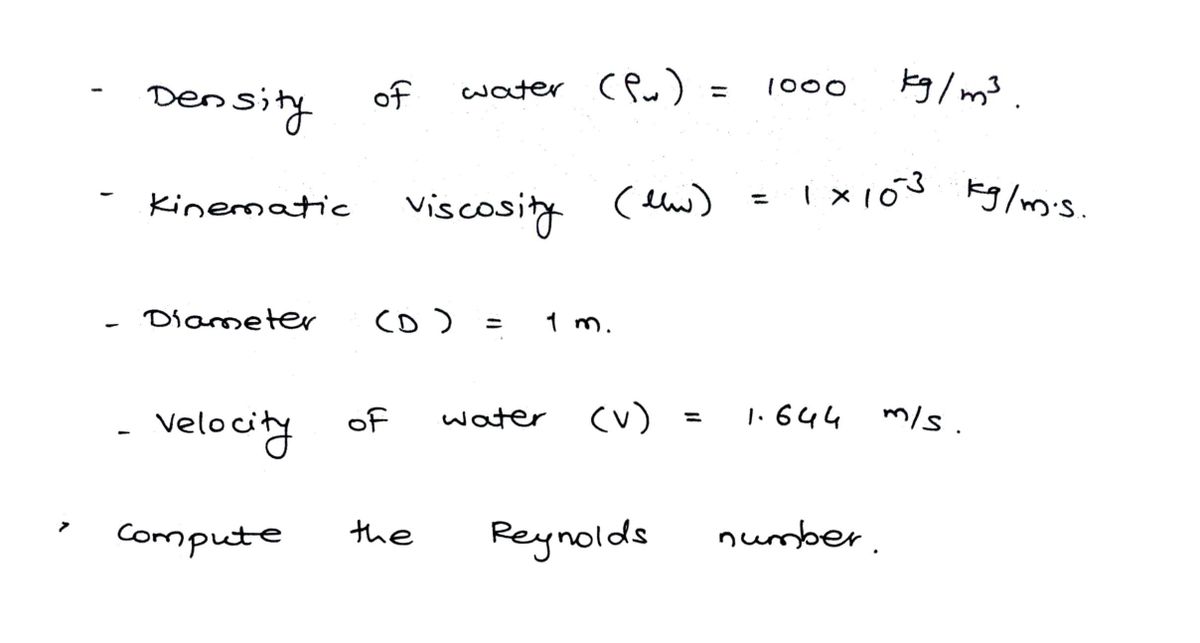 - Density of water (ρw) = 1000 kg/m³.
- Kinematic viscosity (μw) = 1 × 10⁻³ kg/m·s.
- Diameter (D) = 1 m.
- Velocity of water (V) = 1.644 m/s.
> Compute the Reynolds number.